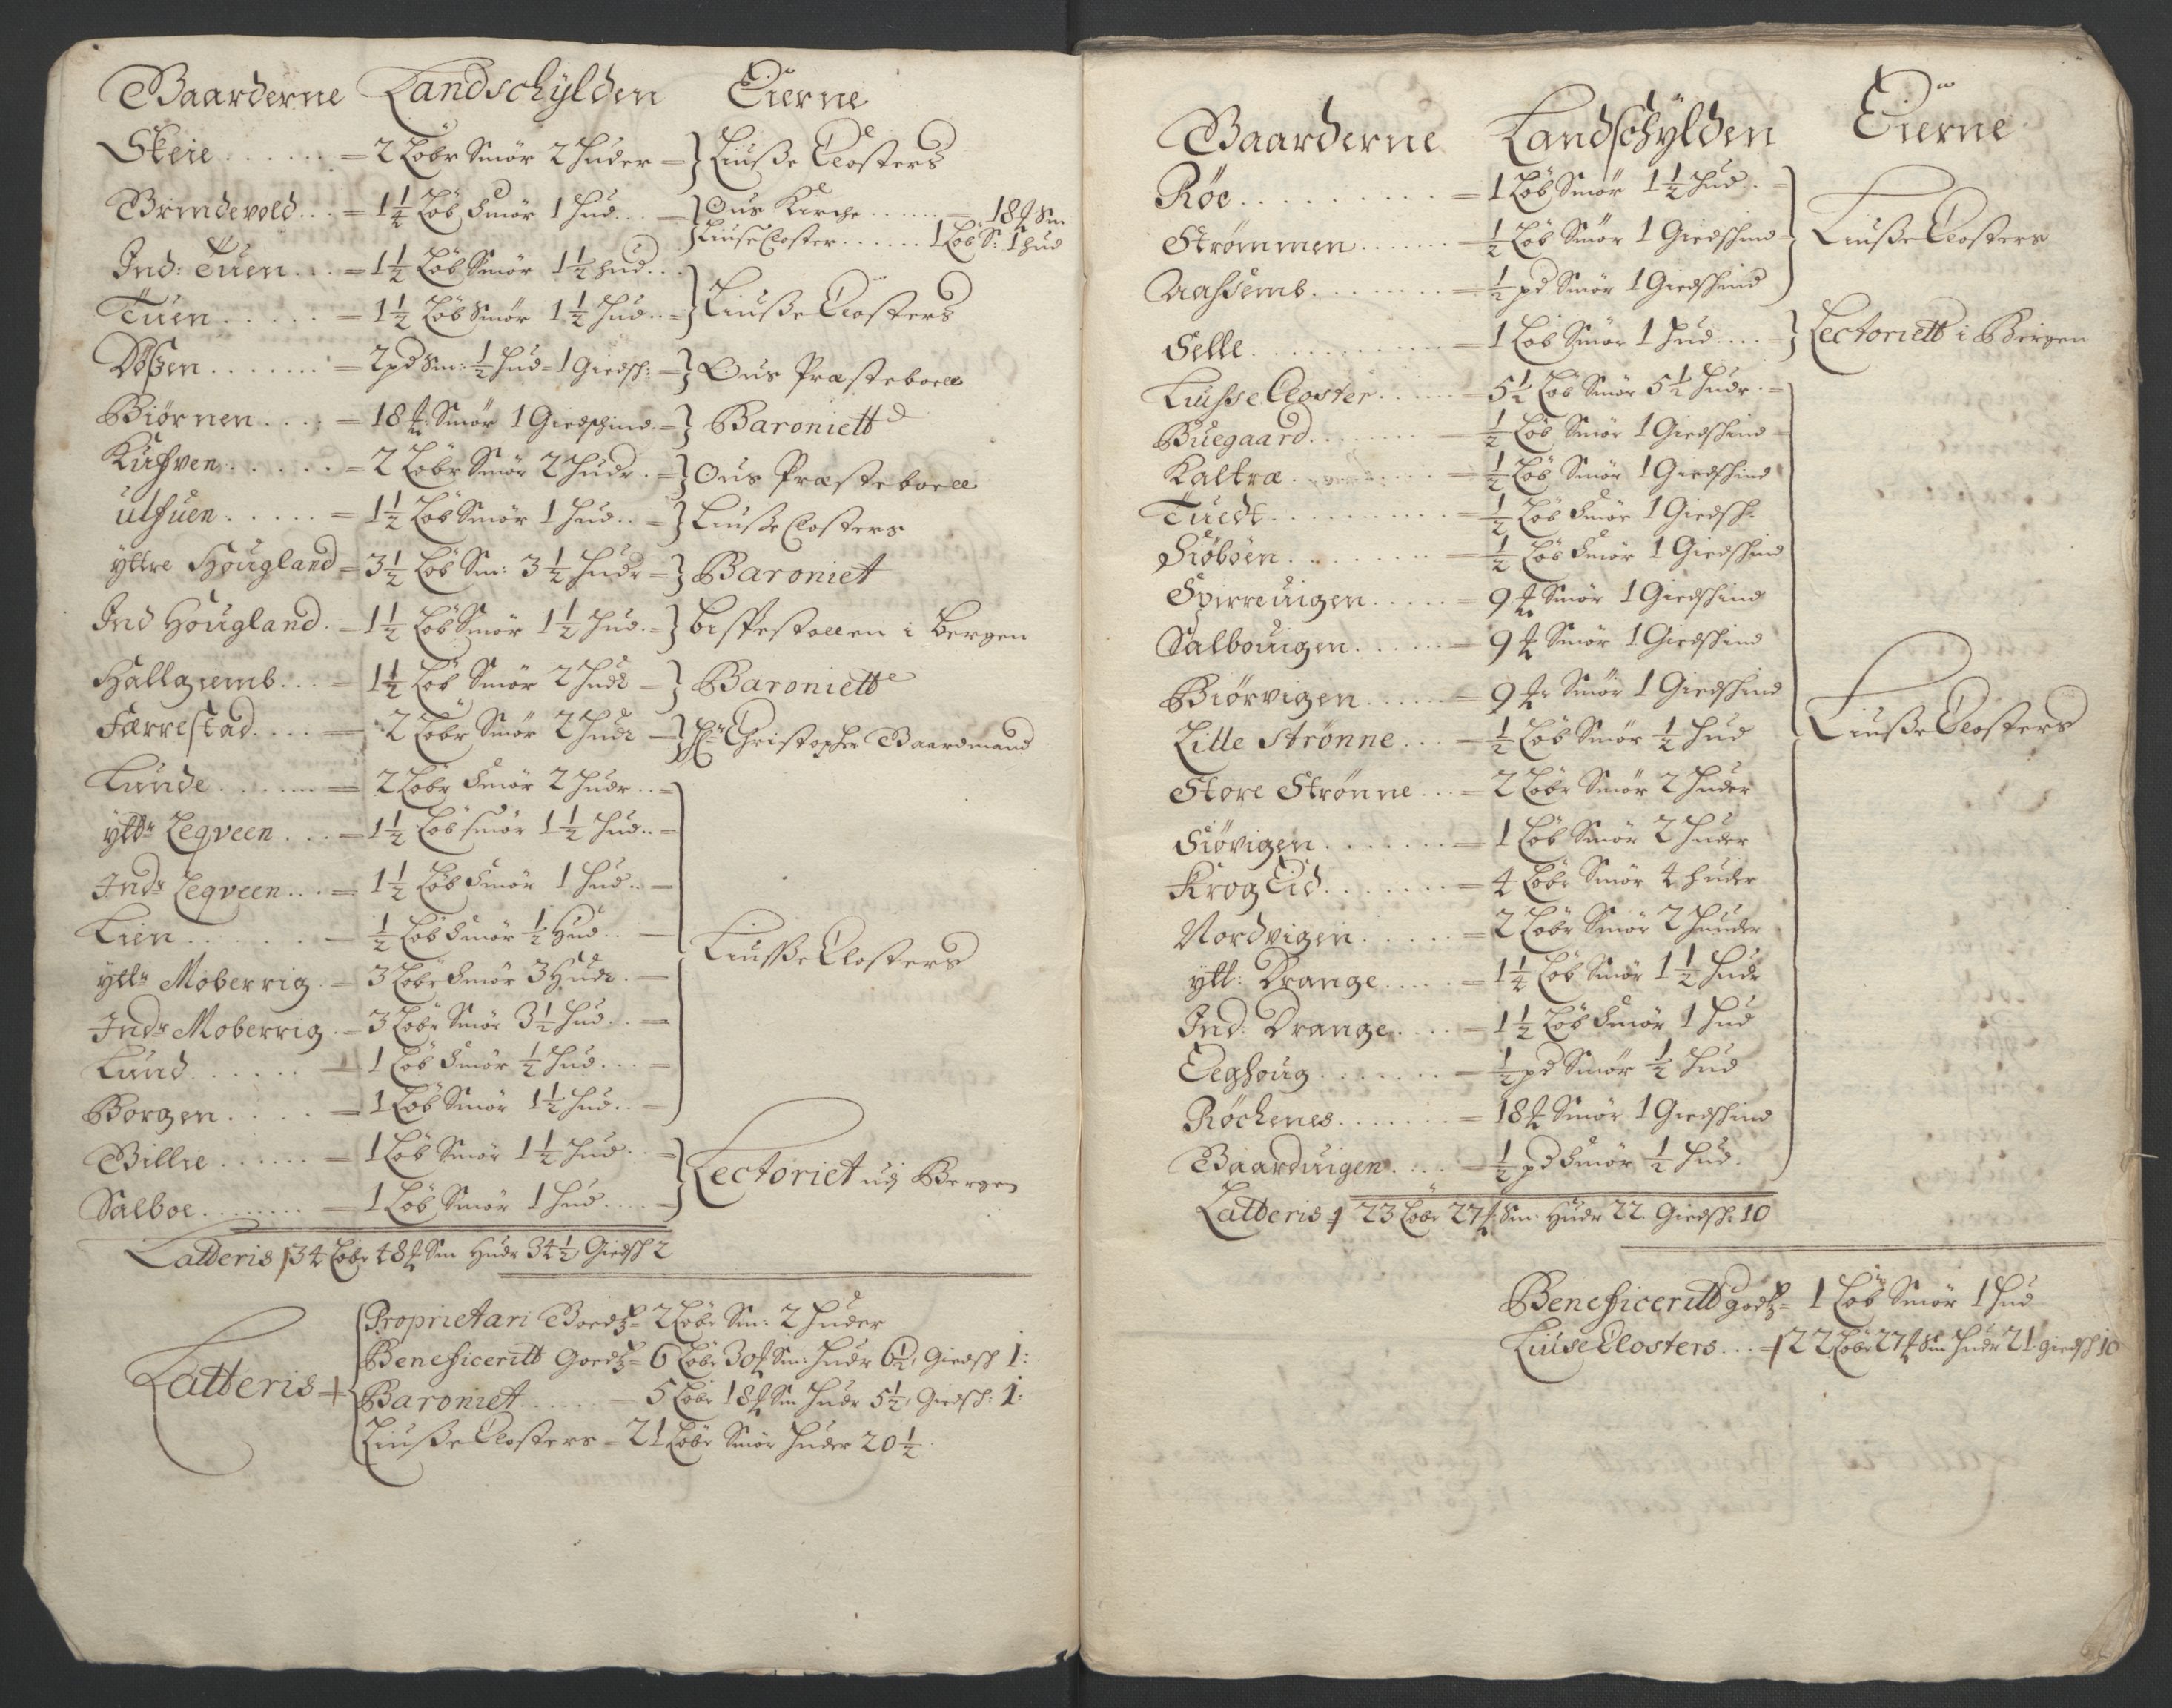 Gaarderne Landschÿlden Eierne
Skeie . . . . . . = 2 Løbr Smør 2 Huder = } Liusse Closters
Brindevold . . . = 1 1/4 Løb Smør 1 Hud . . . = } Ous Kirche . . . . . . = 18 ℔ Sm
Liuse Closter . . . . . . 1 Løb S: 1 hud
Ind: Tuen . . . = 1 1/2 Løb Smør 1 1/2 hud . . .
Tuen . . . . . = 1 1/2 Løb Smør 1 1/2 Hud . . = } Liusse Closters
Døssen . . . . . . . = 2 pd Sm: 1/2 Hud = 1 Giedsh: = } Ous Præsteboell
Biørnen . . . . = 18 ℔ Smør 1 Giedschind . = } Baroniett
Kuhven . . . . . = 2 Løbr Smør 2 Hudr . = } Ous Præsteboell
Ulfuen . . . . . = 1 1/2 Løb Smør 1 Hud . . = } Liusse Closters
ÿttre Hougland = 3 1/2 Løb Sm: 3 1/2 Hudr = } Baroniet
Ind Hougland . = 1 1/2 Løb Smør 1 1/2 Hud . = } bispestollen i bergen
Hallgiemb . . . = 1 1/2 Løb Smør 2 Hudr = } Baroniett
Færrestad . . . . = 2 Løbr Smør 2 Hudr = } Hr Christopher Gaardmand
Lunde . . . . . . . = 2 Løbr Smør 2 Hudr . . =
ÿttr Legveen . . . = 1 1/2 Løb smør 1 1/2 Hud . . =
Indr Legveen . . . = 1 1/2 Løb Smør 1 Hud . . =
Lien . . . . . . = 1/2 Løb Smør 1/2 Hud . . = Liusse Closters
ÿttr Moberrig . = 3 Løbr Smør 3 Hudr . =
Indr Moberrig . = 3 Løbr Smør 3 1/2 Hud . . =
Lund . . . . . . = 1 Løb Smør 1/2 Hud . . . =
Borgen . . . . = 1 Løb Smør 1 1/2 Hud . . =
Billie . . . . . . = 1 Løb Smør 1 1/2 Hud . . =
Salboe . . . . . . . = 1 Løb Smør 1 Hud . . . . = } Lectoriet udj Bergen
Latteris 34 Løbr 48 ℔ Sm Hudr 34 1/2, Giedsh 2
Proprietari Goedtz = 2 Løbr Sm: 2 Huder
Beneficeritt Goedtz = 6 Løbr 30 ℔ Sm: Hudr 6 1/2, Giedsh 1:
Latteris
Baroniet . . . . . = 5 Løbr 18 ℔ Sm Hudr 5 1/2, Giedsh: 1:
Liusse Closters = 21 Løbr Smør Huder 20 1/2 .
Gaarderne Landschÿlden Eierne
Røe . . . . . . . . . = 1 Løb Smør 1 1/2 Hud . . =
Strømmen . . . . . . = 1/2 Løb Smør 1 Giedschind = Liusse Closters
Aahsemb . . . . . . . = 1/2 pd Smør 1 Giedschind
Selle . . . . . . . . . . = 1 Løb Smør 1 Hud . . . . = } Lectoriett i Bergen
Liusse Closter . . . . . = 5 1/2 Løb Smør 5 1/2 Hudr . =
Buegaard . . . . . . = 1/2 Løb Smør 1 Giedschind =
Kaltræ . . . . . . . = 1/2 Løb Smør 1 Giedschind
Tuedt . . . . . . . . . = 1/2 Løb Smør 1 Giedsh.
Siøbøen . . . . . . . = 1/2 Løb Smør 1 Giedschind
Spirreuigen . . . . . = 9 ℔ Smør 1 Giedschind
Salbouigen . . . . . . = 9 ℔ Smør 1 Giedschind
Biørvigen . . . . . . = 9 ℔ Smør 1 Giedschind
Lille Strønne . . . = 1/2 Løb Smør 1/2 Hud Liusse Closters
Store Strønne . . . = 2 Løbr Smør 2 Huder
Siøvigen . . . . . . . = 1 Løb Smør 2 Huder
Krog Eid . . . . . . . = 4 Løbr Smør 4 hudr
Nordvigen . . . . . . = 2 Løbr Smør 2 Huuder
ÿtt: Drange . . . . . = 1 1/4 Løb Smør 1 1/2 Hudr
Ind: Drange . . . . = 1 1/2 Løb Smør 1 Hud
Eeghoug . . . . . . . = 1/2 pd Smør 1/2 Hud
Røchenes . . . . . . . = 18 ℔ Smør 1 Giedschind
Baarduigen . . . . = 1/2 pd Smør 1/2 Hud .
Latteris 23 Løbr 27 ℔ Sm: Hudr 22 Giedsh: 10
Beneficeritt goedtz = 1 Løb Smør 1 Hud
Liuse Closters . . . = 22 Løbr 27 ℔ Sm Hudr 21 giedsh 10